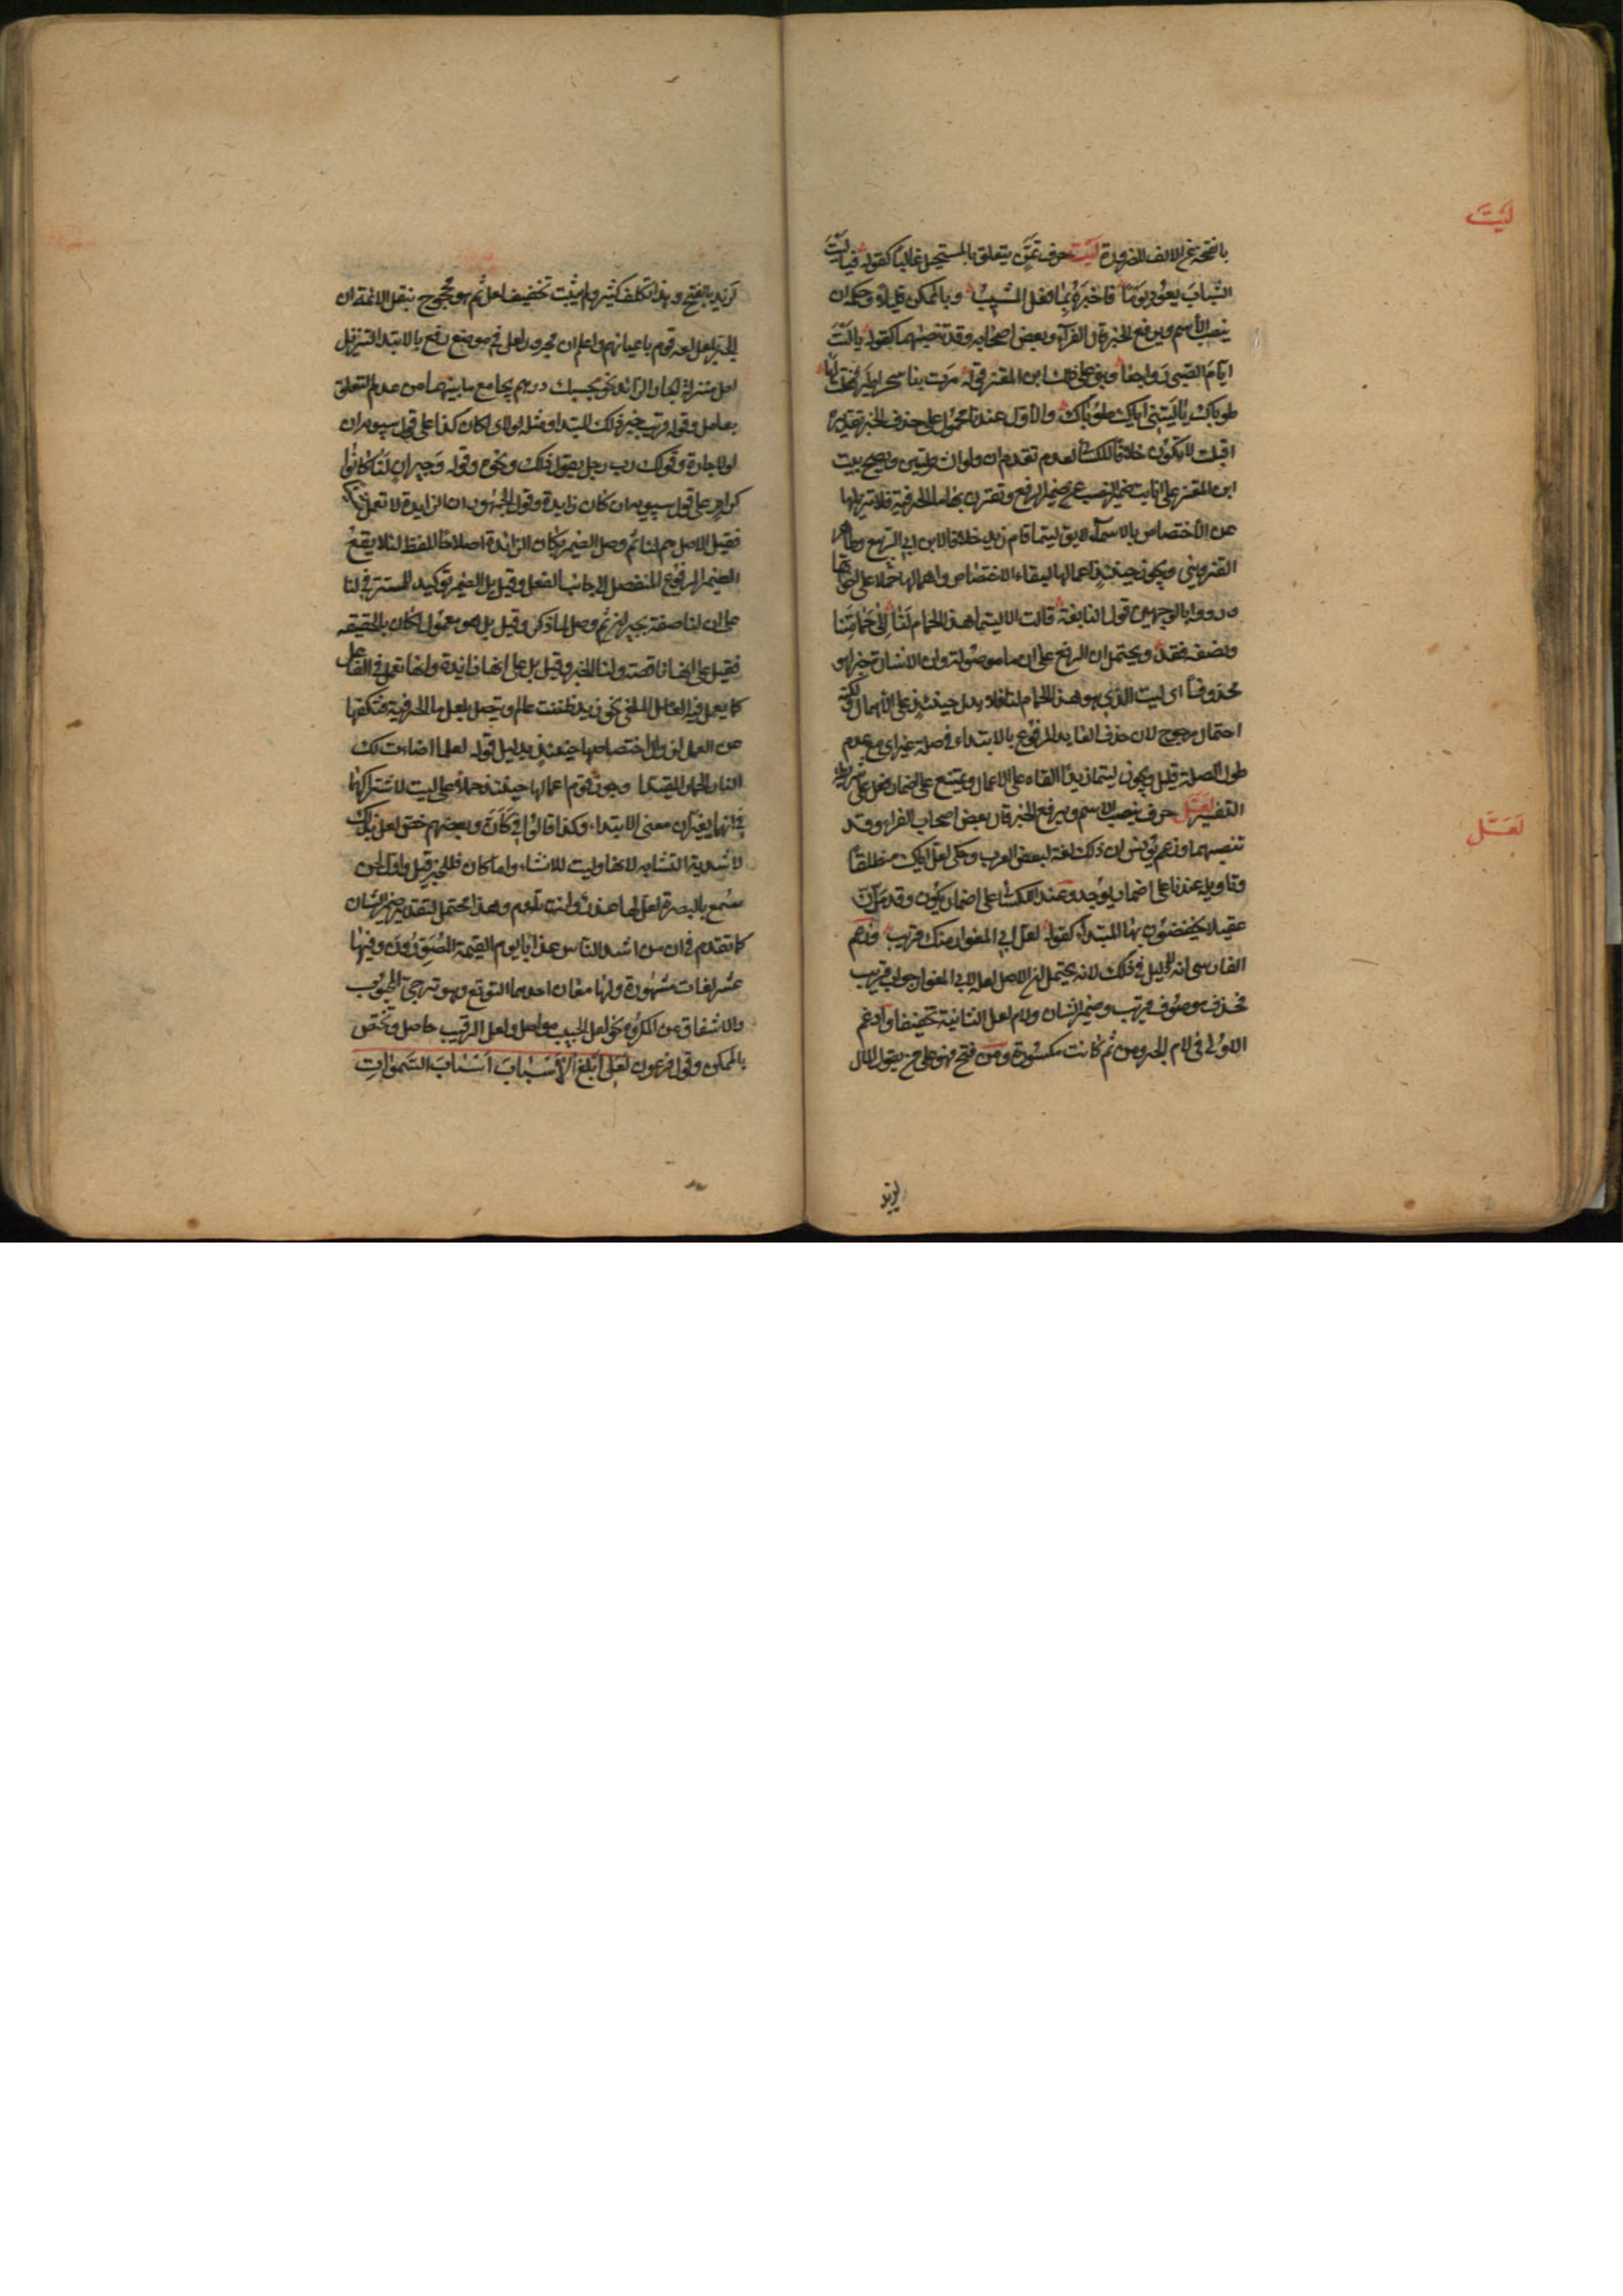 ليت
بالفتحة عن الالف للضرورة ليت حرف تمن يتعلق بالمستحيل غالبا كقوله فيا ليت
الشباب يعود يوما فاخبره بما فعل المشيب وبالممكن قليلا وحكمه ان
ينصب الاسم ويرفع الخبر قال الفراء وبعض اصحابه وقد تنصبهما كقوله يا ليت
ايام الصبى رواجعا وبنى على ذلك ابن المعتز قوله مرت بنا سحرا طير فقلت لها
طوباك يا ليتنى اياك طوباك والاول عندنا محمول على حذف الخبر تقديره
اقبلت لا تكون خلافا للكسائى لعدم تقدم ان ولو الشرطيتين ويصح بيت
ابن المعتز على انابة ضمير النصب عن ضمير الرفع وتقترن بها ما الحرفية فلا تزيلها
عن الاختصاص بالاسماء لا يق ليتما قام زيد خلافا لابن ابى الربيع وطاهر
القزوينى ويجوز حينئذ اعمالها لبقاء الاختصاص واهمالها حملا على اخواتها
ورووا بالوجهين قول النابغة قالت الا ليتما هذا الحمام لنا الى حمامتنا
ونصفه فقد ويحتمل ان الرفع على ان ما موصولة وان الاشارة خبر لهو
محذوفا اى ليت الذى هو هذا الحمام لنا فلا يدل حينئذ على الاهمال ولكنه
احتمال مرجوح لان حذف العايد المرفوع بالابتداء فى صلة غير اى مع عدم
طول الصلة قليل ويجوز ليتما زيدا القاه على الاعمال ويمتنع على اضمار فعل على شريطة
لعل
التفسير لعل حرف ينصب الاسم ويرفع الخبر قال بعض اصحاب الفراء وقد
تنصبهما وزعم يونس ان ذلك لغة لبعض العرب وحكى لعل اباك منطلقا
وتاويله عندنا على اضمار يوجد وعند الكسائى على اضمار يكون وقد مر ان
عقيلا يخفضون بها المبتدا كقوله لعل ابى المغوار منك قريب وزعم
الفارسى انه لا دليل فى ذلك لانه يحتمل ان الاصل لعله لابى المغوار جواب قريب
فحذف موصوف قريب وضمير الشان ولام لعل الثانية تخفيفا وادغم
الاولى فى لام الجر ومن ثم كانت مكسورة ومن فتح فهو على من يقول المال
لزيد
لزيد بالفتح وهذا تكلف كثير ولم يثبت تخفيف لعل ثم هو محجوج بنقل الائمة ان
الجر بلعل لغة قوم باعيانهم واعلم ان مجرور لعل فى موضع رفع بالابتداء لتنزيل
لعل منزلة الجار الزائد نحو بحسبك درهم بجامع ما بينهما من عدم التعلق
بعامل وقوله قريب خبر ذلك المبتدا ومثله لولاى لكان كذا على قول سيبويه ان
لولا جارة وقولك رب رجل يقول ذلك ونحوه وقوله وجيران لنا كانوا
كرام على قول سيبويه ان كان زايدة وقول الجمهور ان الزايدة لا تعمل شيئا
فقيل الاصل هم لنا ثم وصل الضمير بكان الزائدة اصلاحا للفظ لئلا يقع
الضمير المرفوع المنفصل الى جانب الفعل وقيل بل الضمير توكيد للمستتر فى لنا
على ان لنا صفة بجيران ثم وصل لما ذكر وقيل بل هو معمول لكان بالحقيقة
فقيل على انها ناقصة ولنا الخبر وقيل بل على انها زائدة وانها تعمل فى الفاعل
كما يعمل فيه العامل الملغى نحو زيد ظننت عالم وتتصل بلعل ما الحرفية فتكفها
عن العمل لزوال اختصاصها حينئذ بدليل قوله لعلما اضاءت لك
النار الحمار المقيدا وجوز قوم اعمالها حينئذ حملا على ليت لاشتراكهما
فى انهما يغيران معنى الابتداء وكذا قالوا فى كأن وبعضهم خص لعل بذلك
لاشدية التشابه لانها وليت للانشاء واما كان فللخبر قيل واول لحن
سمع بالبصرة لعل لها عذر وانت تلوم وهذا محتمل لتقدير ضمير الشان
كما تقدم فى ان من اشد الناس عذابا يوم القيمة المصورون وفيها
عشر لغات مشهورة ولها معان احدها التوقع وهو ترجى المحبوب
والاشفاق من المكروه نحو لعل الحبيب مواصل ولعل الرقيب حاصل وتختص
بالممكن وقول فرعون لعلى ابلغ الاسباب اسباب السموات